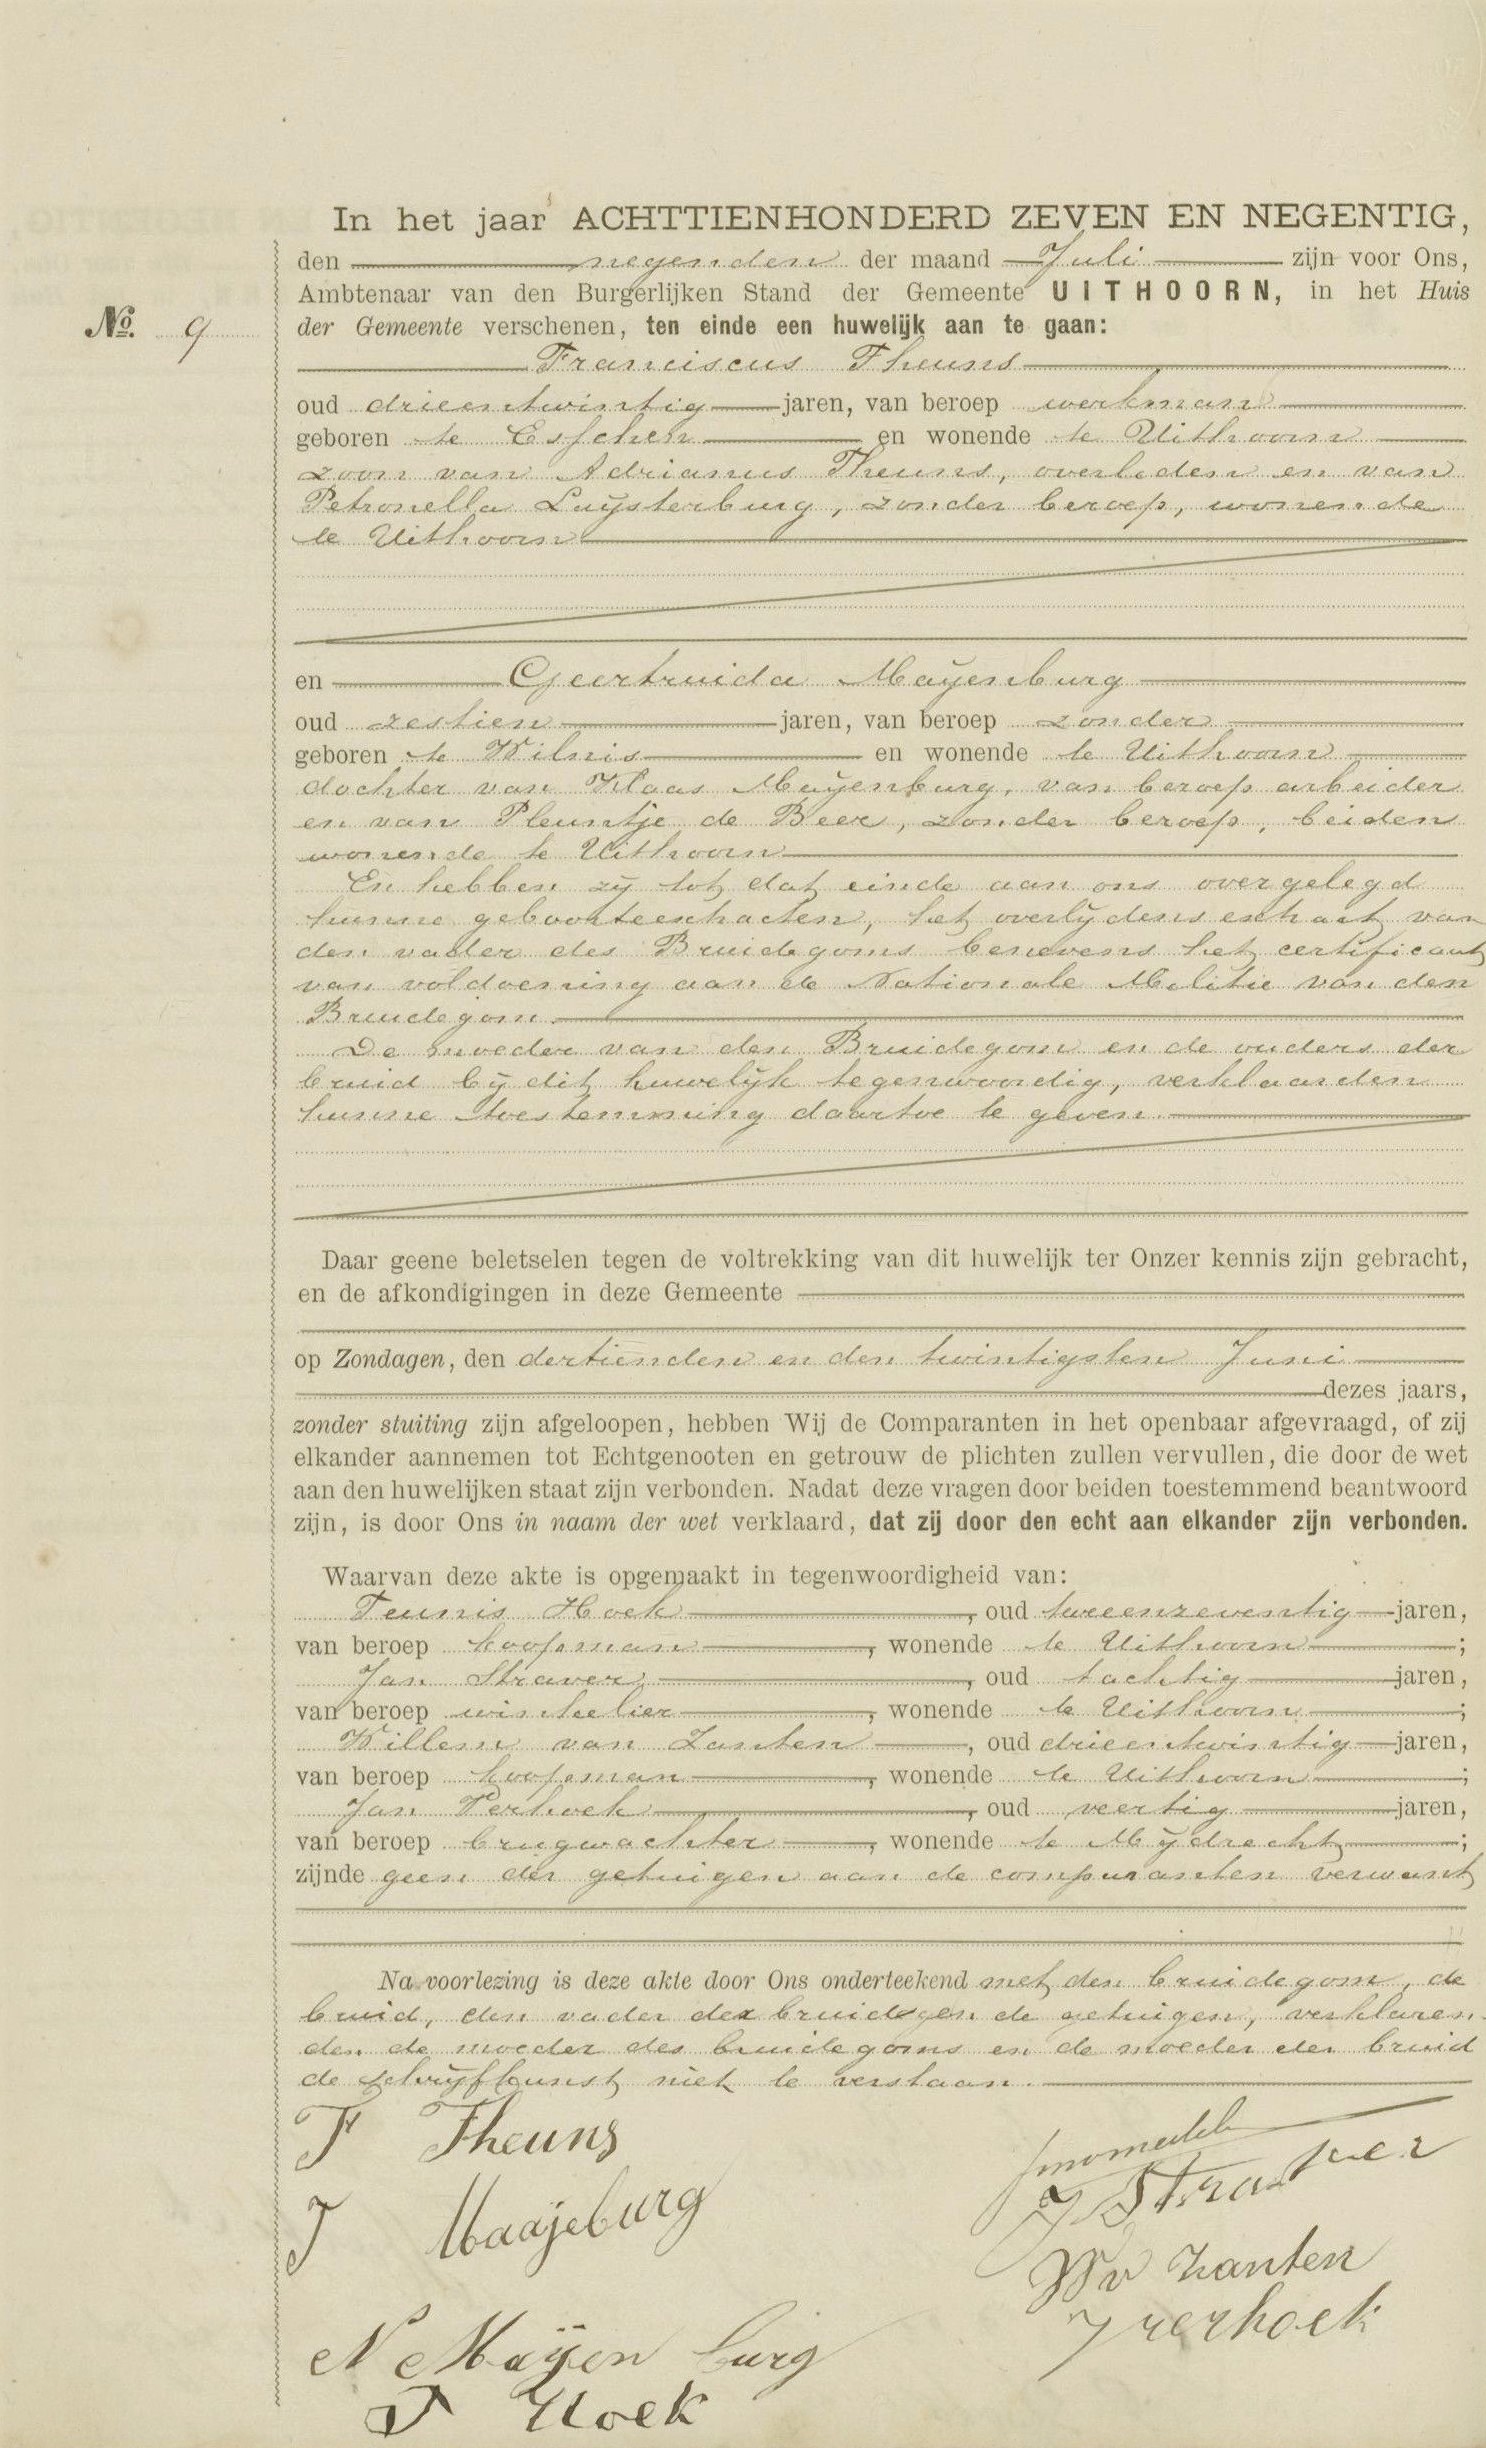 In het jaar ACHTTIENHONDERD ZEVEN EN NEGENTIG,
den negenden der maand Juli zijn voor Ons,
Ambtenaar van den Burgerlijken Stand der Gemeente UITHOORN, in het Huis
No. 9
der Gemeente verschenen, ten einde een huwelijk aan te gaan:
Franciscus Theuns
oud drieentwintig jaren, van beroep werkman
geboren te Esschen en wonende te Uithoorn
zoon van Adrianus Theuns, overleden en van
Petronella Luijsterburg, zonder beroep, wonende
te Uithoorn
en Geertruida Maÿenburg
oud zestien jaren, van beroep zonder
geboren te Wilnis en wonende te Uithoorn
dochter van Klaas Maÿenburg, van beroep arbeider
en van Pleuntje de Beer, zonder beroep, beiden
wonende te Uithoorn
En hebben zÿ tot dat einde aan ons overgelegd
hunne geboorteextracten, het overlÿdensextract van
den vader des Bruidegoms benevens het certificaat
van voldoening aan de Nationale Militie van den
Bruidegom.
De moeder van den Bruidegom en de ouders der
bruid bÿ dit huwelÿk tegenwoordig, verklaarden
hunne toestemming daartoe te geven.
Daar geene beletselen tegen de voltrekking van dit huwelijk ter Onzer kennis zijn gebracht,
en de afkondigingen in deze Gemeente
op Zondagen, den dertienden en den twintigsten Juni
dezes jaars,
zonder stuiting zijn afgeloopen, hebben Wij de Comparanten in het openbaar afgevraagd, of zij
elkander aannemen tot Echtgenooten en getrouw de plichten zullen vervullen, die door de wet
aan den huwelijken staat zijn verbonden. Nadat deze vragen door beiden toestemmend beantwoord
zijn, is door Ons in naam der wet verklaard, dat zij door den echt aan elkander zijn verbonden.
Waarvan deze akte is opgemaakt in tegenwoordigheid van:
Teunis Hoek, oud tweeenzeventig jaren,
van beroep koopman, wonende te Uithoorn;
Jan Straver, oud tachtig jaren,
van beroep winkelier, wonende te Uithoorn;
Willem van Zanten, oud drieentwintig jaren,
van beroep koopman, wonende te Uithoorn;
Jan Verhoek, oud veertig jaren,
van beroep brugwachter, wonende te Mÿdrecht;
zijnde geen der getuigen aan de comparanten verwant
Na voorlezing is deze akte door Ons onderteekend met den bruidegom, de
bruid, den vader der bruid en de getuigen, verklaren-
den de moeder des bruidegoms en de moeder der bruid
de schrÿfkunst niet te verstaan.
F Theuns
J Straver
Maajeburg
W v Zanten
N Maÿenburg
J verhoek
T Hoek